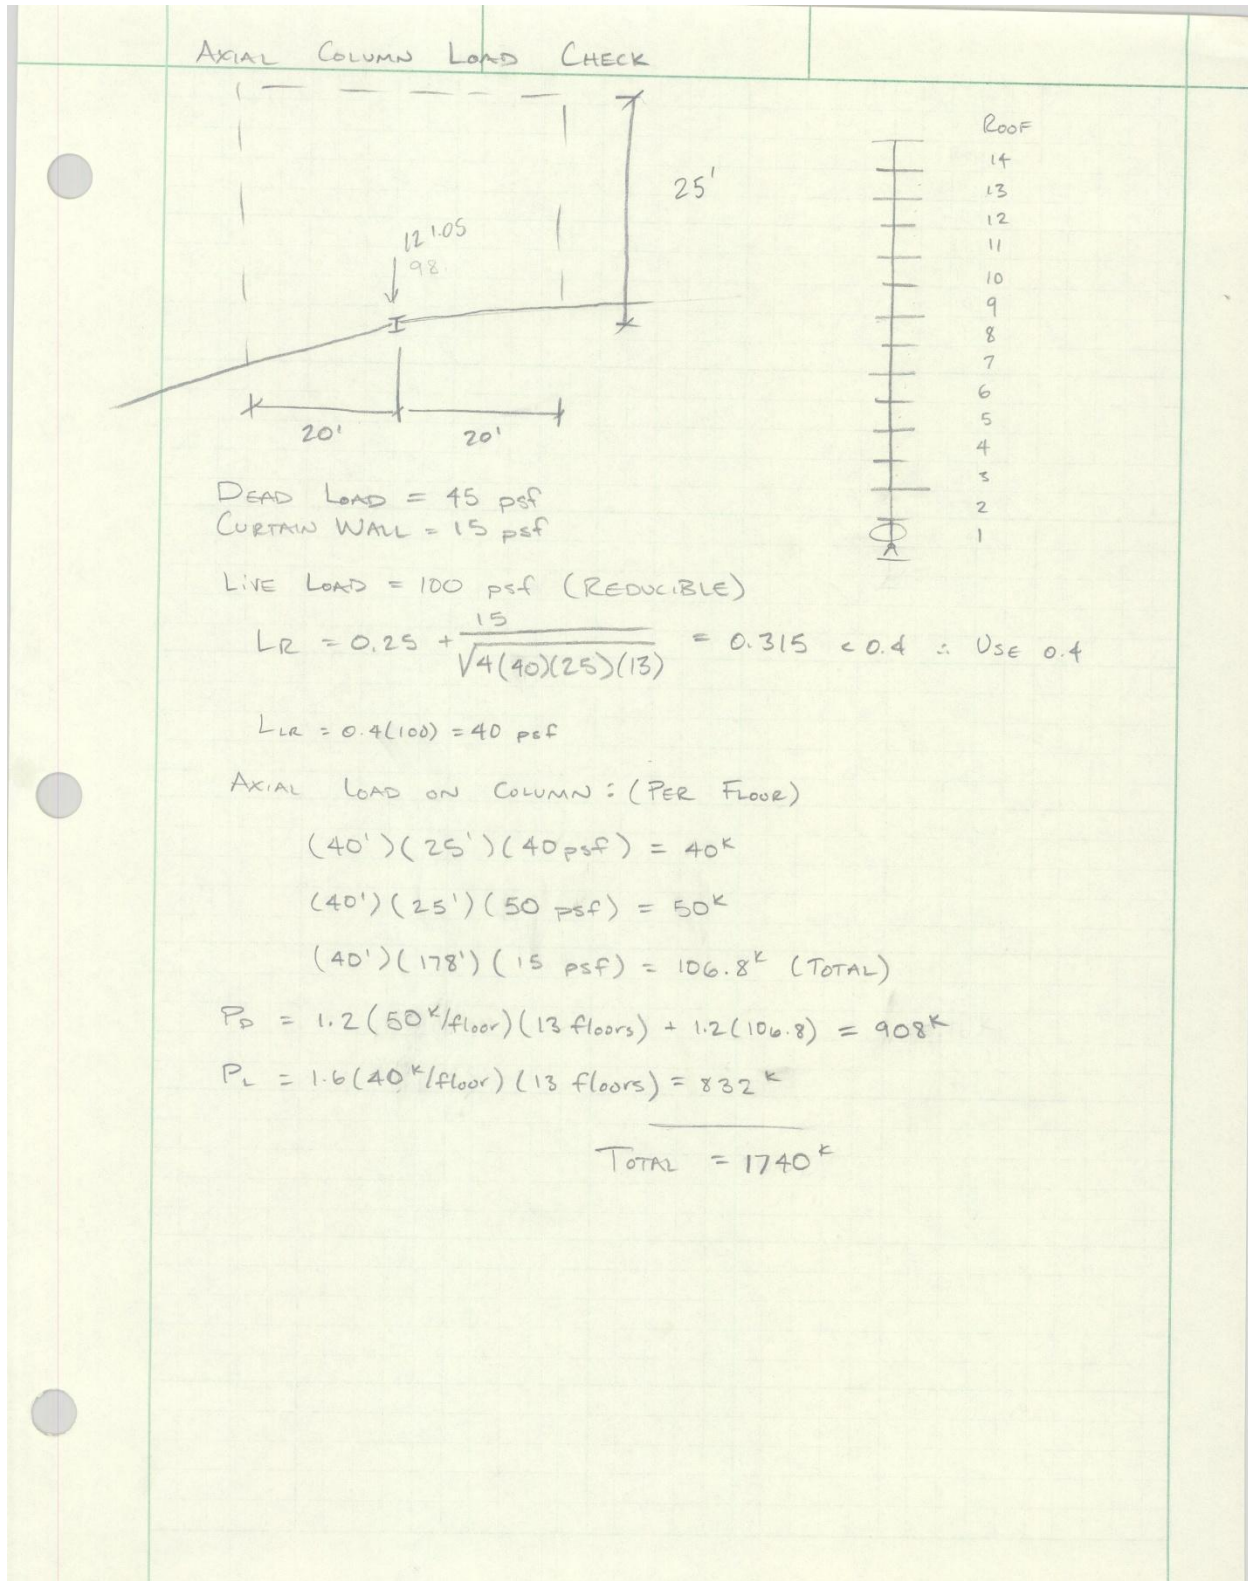 AXIAL COLUMN LOAD CHECK
25'
121.05
98.
20' 20'
ROOF
14
13
12
11
10
9
8
7
6
5
4
3
2
1
DEAD LOAD = 45 psf
CURTAIN WALL = 15 psf
LIVE LOAD = 100 psf (REDUCIBLE)
LR = 0.25 + 15 / √4(40)(25)(13) = 0.315 < 0.4 ∴ USE 0.4
LLR = 0.4(100) = 40 psf
AXIAL LOAD ON COLUMN: (PER FLOOR)
(40')(25')(40psf) = 40K
(40')(25')(50 psf) = 50K
(40')(178')(15 psf) = 106.8K (TOTAL)
PD = 1.2(50K/floor)(13 floors) + 1.2(106.8) = 908K
PL = 1.6(40K/floor)(13 floors) = 832K
TOTAL = 1740K